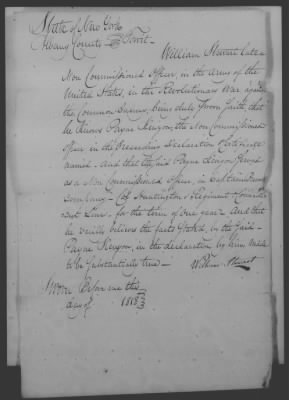 State of New York
Albany County } Towit.
William Stewart late a
Non Commissioned Officer, in the Army of the
United States, in the Revolutionary War against
the Common Enemy, being duly Sworn Saith, that
he knows Payne Kenyon, the Non Commissioned
Officer in the Preceeding Declaration &
named - And that the said Payne Kenyon Served
as a Non Commissioned Officer, in Captain
Company - Col. Huntington's Regiment - Connecticut
Line, for the term of one year - And that
he verily believes the facts Stated, in the Said
Payne Kenyon, in the declaration by him made
to be Substantially true -
William Stewart
Sworn Before me this
day of 1818